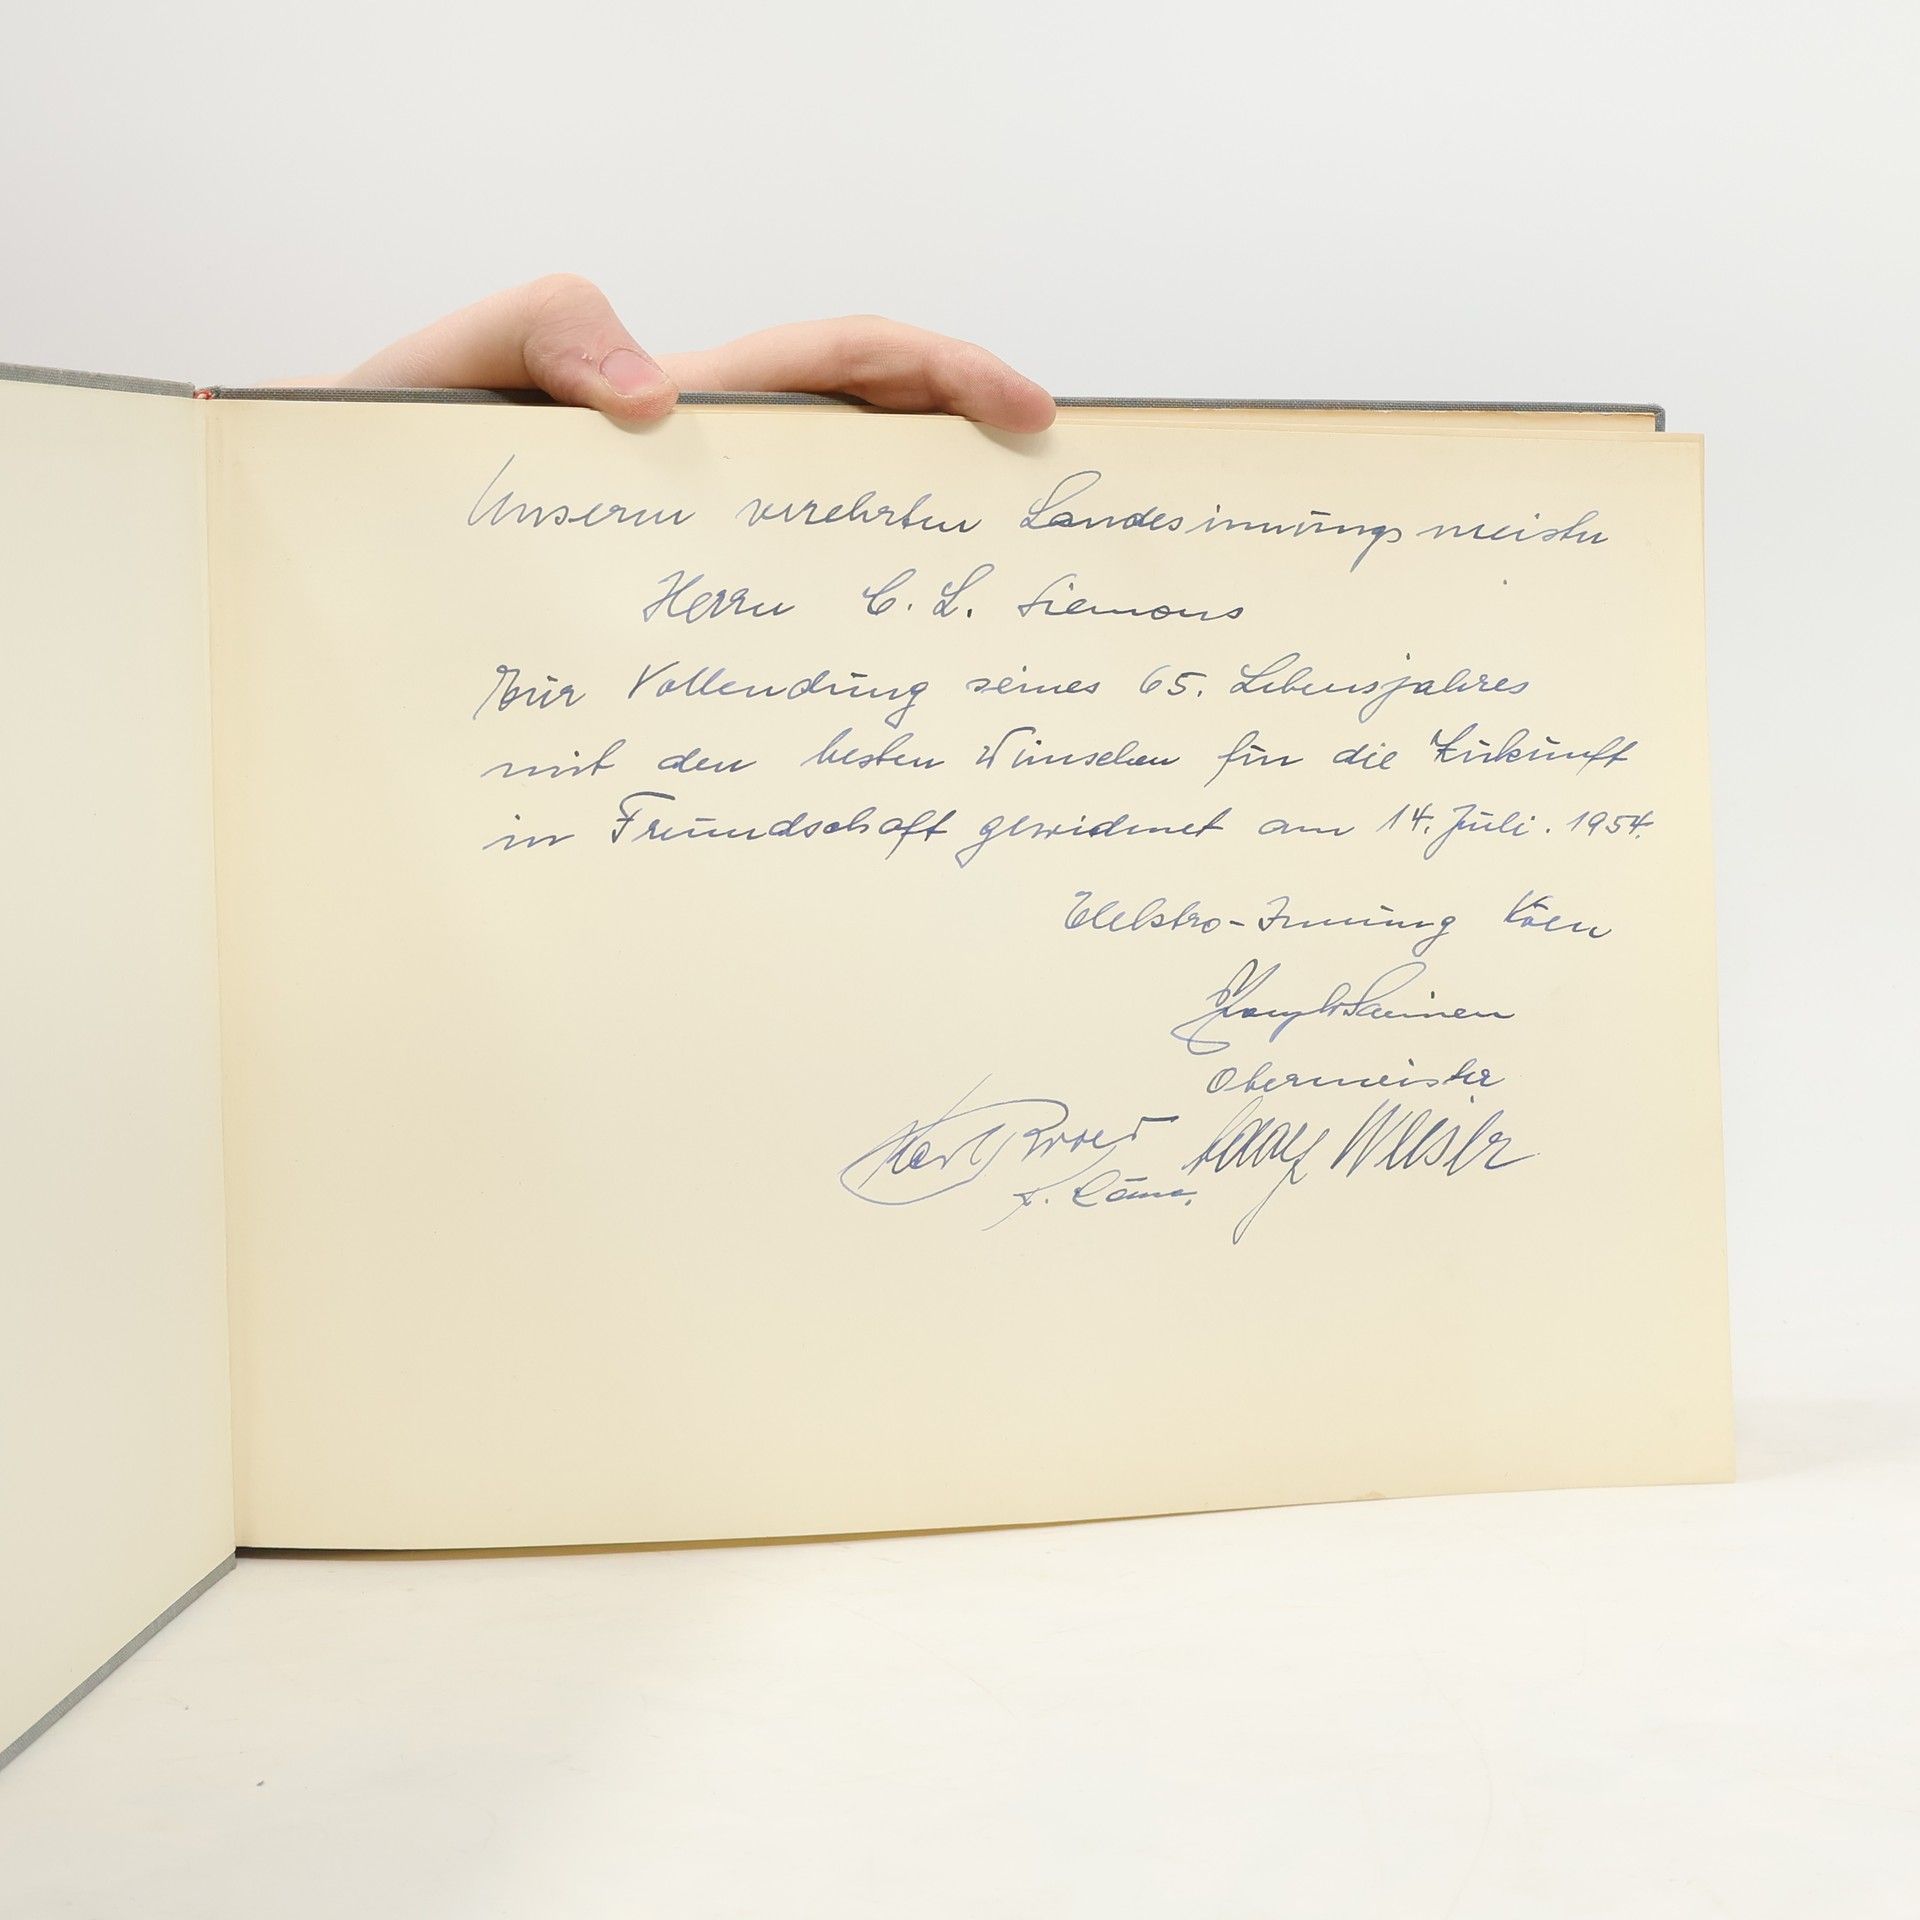 Unserm verehrten Landesinnungsmeister
Herrn C. L. Siemons
zur Vollendung seines 65. Lebensjahres
mit den besten Wünschen für die Zukunft
in Freundschaft gewidmet am 14. Juli. 1954.
Elektro-Innung Köln
Obermeister